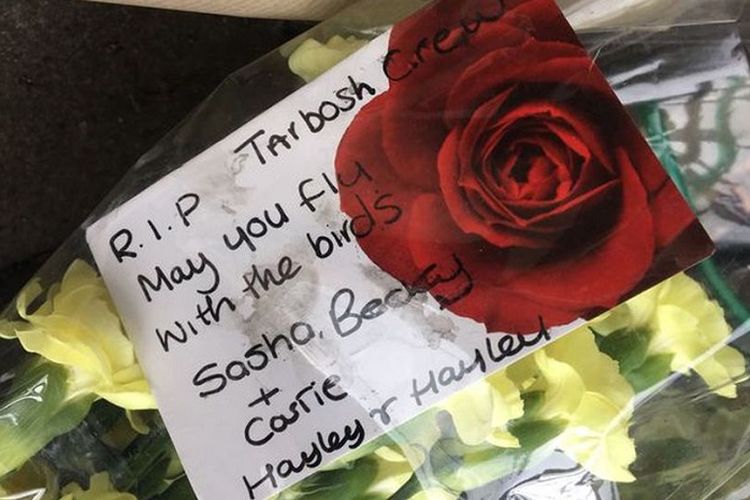 R.I.P Tarbosh Crew
May you fly
with the birds
Sasha, Becky
+
Hayley or Hayley